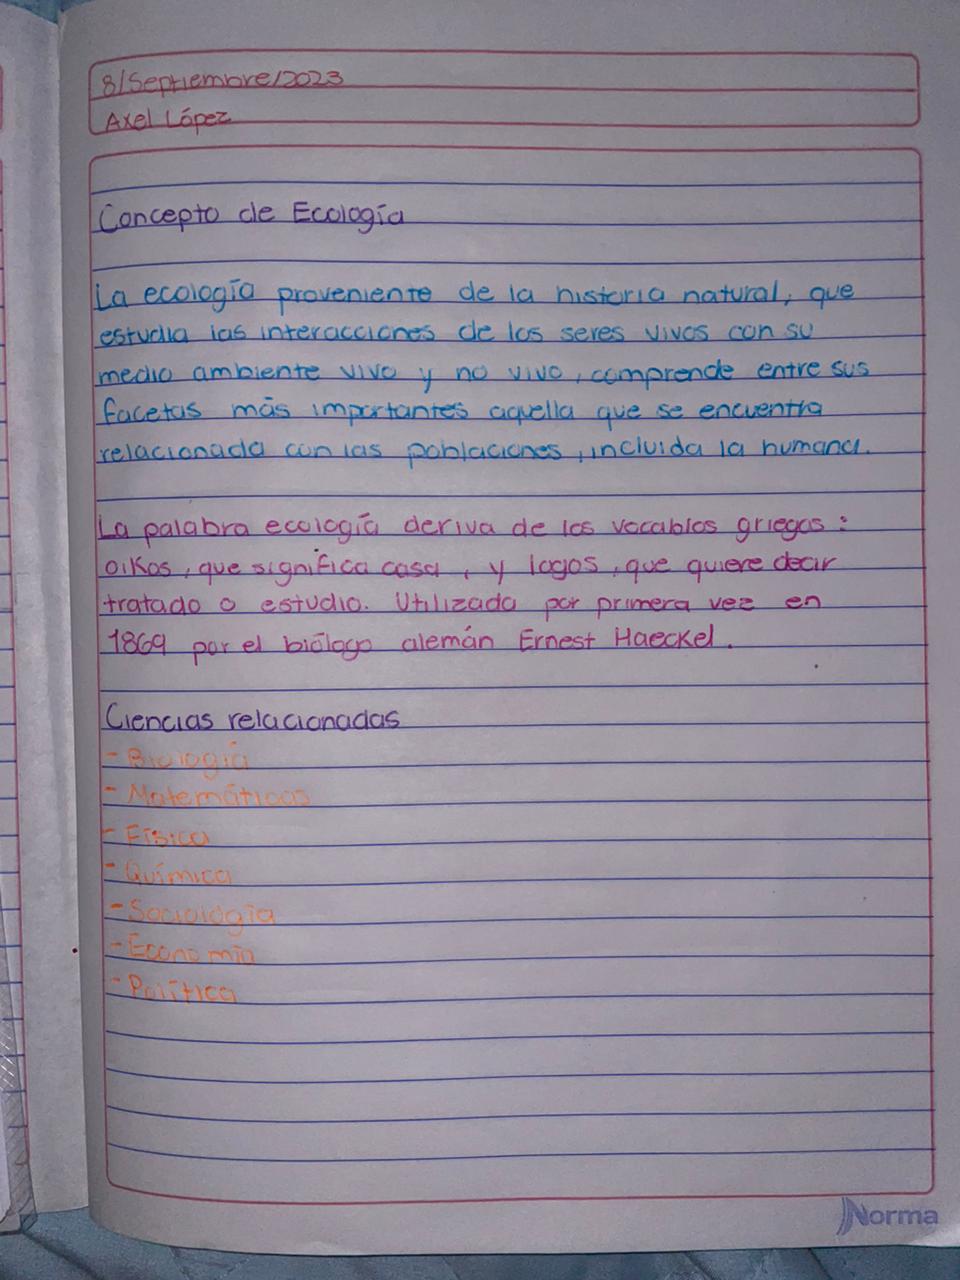 8/Septiembre/2023
Axel López
Concepto de Ecología
La ecología proveniente de la historia natural, que
estudia las interacciones de los seres vivos con su
medio ambiente vivo y no vivo, comprende entre sus
facetas más importantes aquella que se encuentra
relacionada con las poblaciones, incluida la humana.
La palabra ecología deriva de los vocablos griegos:
oikos, que significa casa, y logos, que quiere decir
tratado o estudio. Utilizada por primera vez en
1869 por el biólogo alemán Ernest Haeckel.
Ciencias relacionadas
- Biología
- Matemáticas
- Física
- Química
- Sociología
- Economía
- Política
Norma